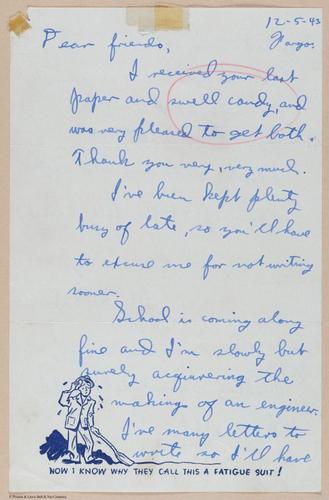 12-5-43
Fargo.
Dear friends,
I received your last
paper and swell candy, and
was very pleased to get both.
Thank you very, very much.
I've been kept plenty
busy of late, so you'll have
to excuse me for not writing
sooner.
School is coming along
fine and I'm slowly but
surely acquirering the
makings of an engineer.
I've many letters to
write so I'll have
NOW I KNOW WHY THEY CALL THIS A FATIGUE SUIT!